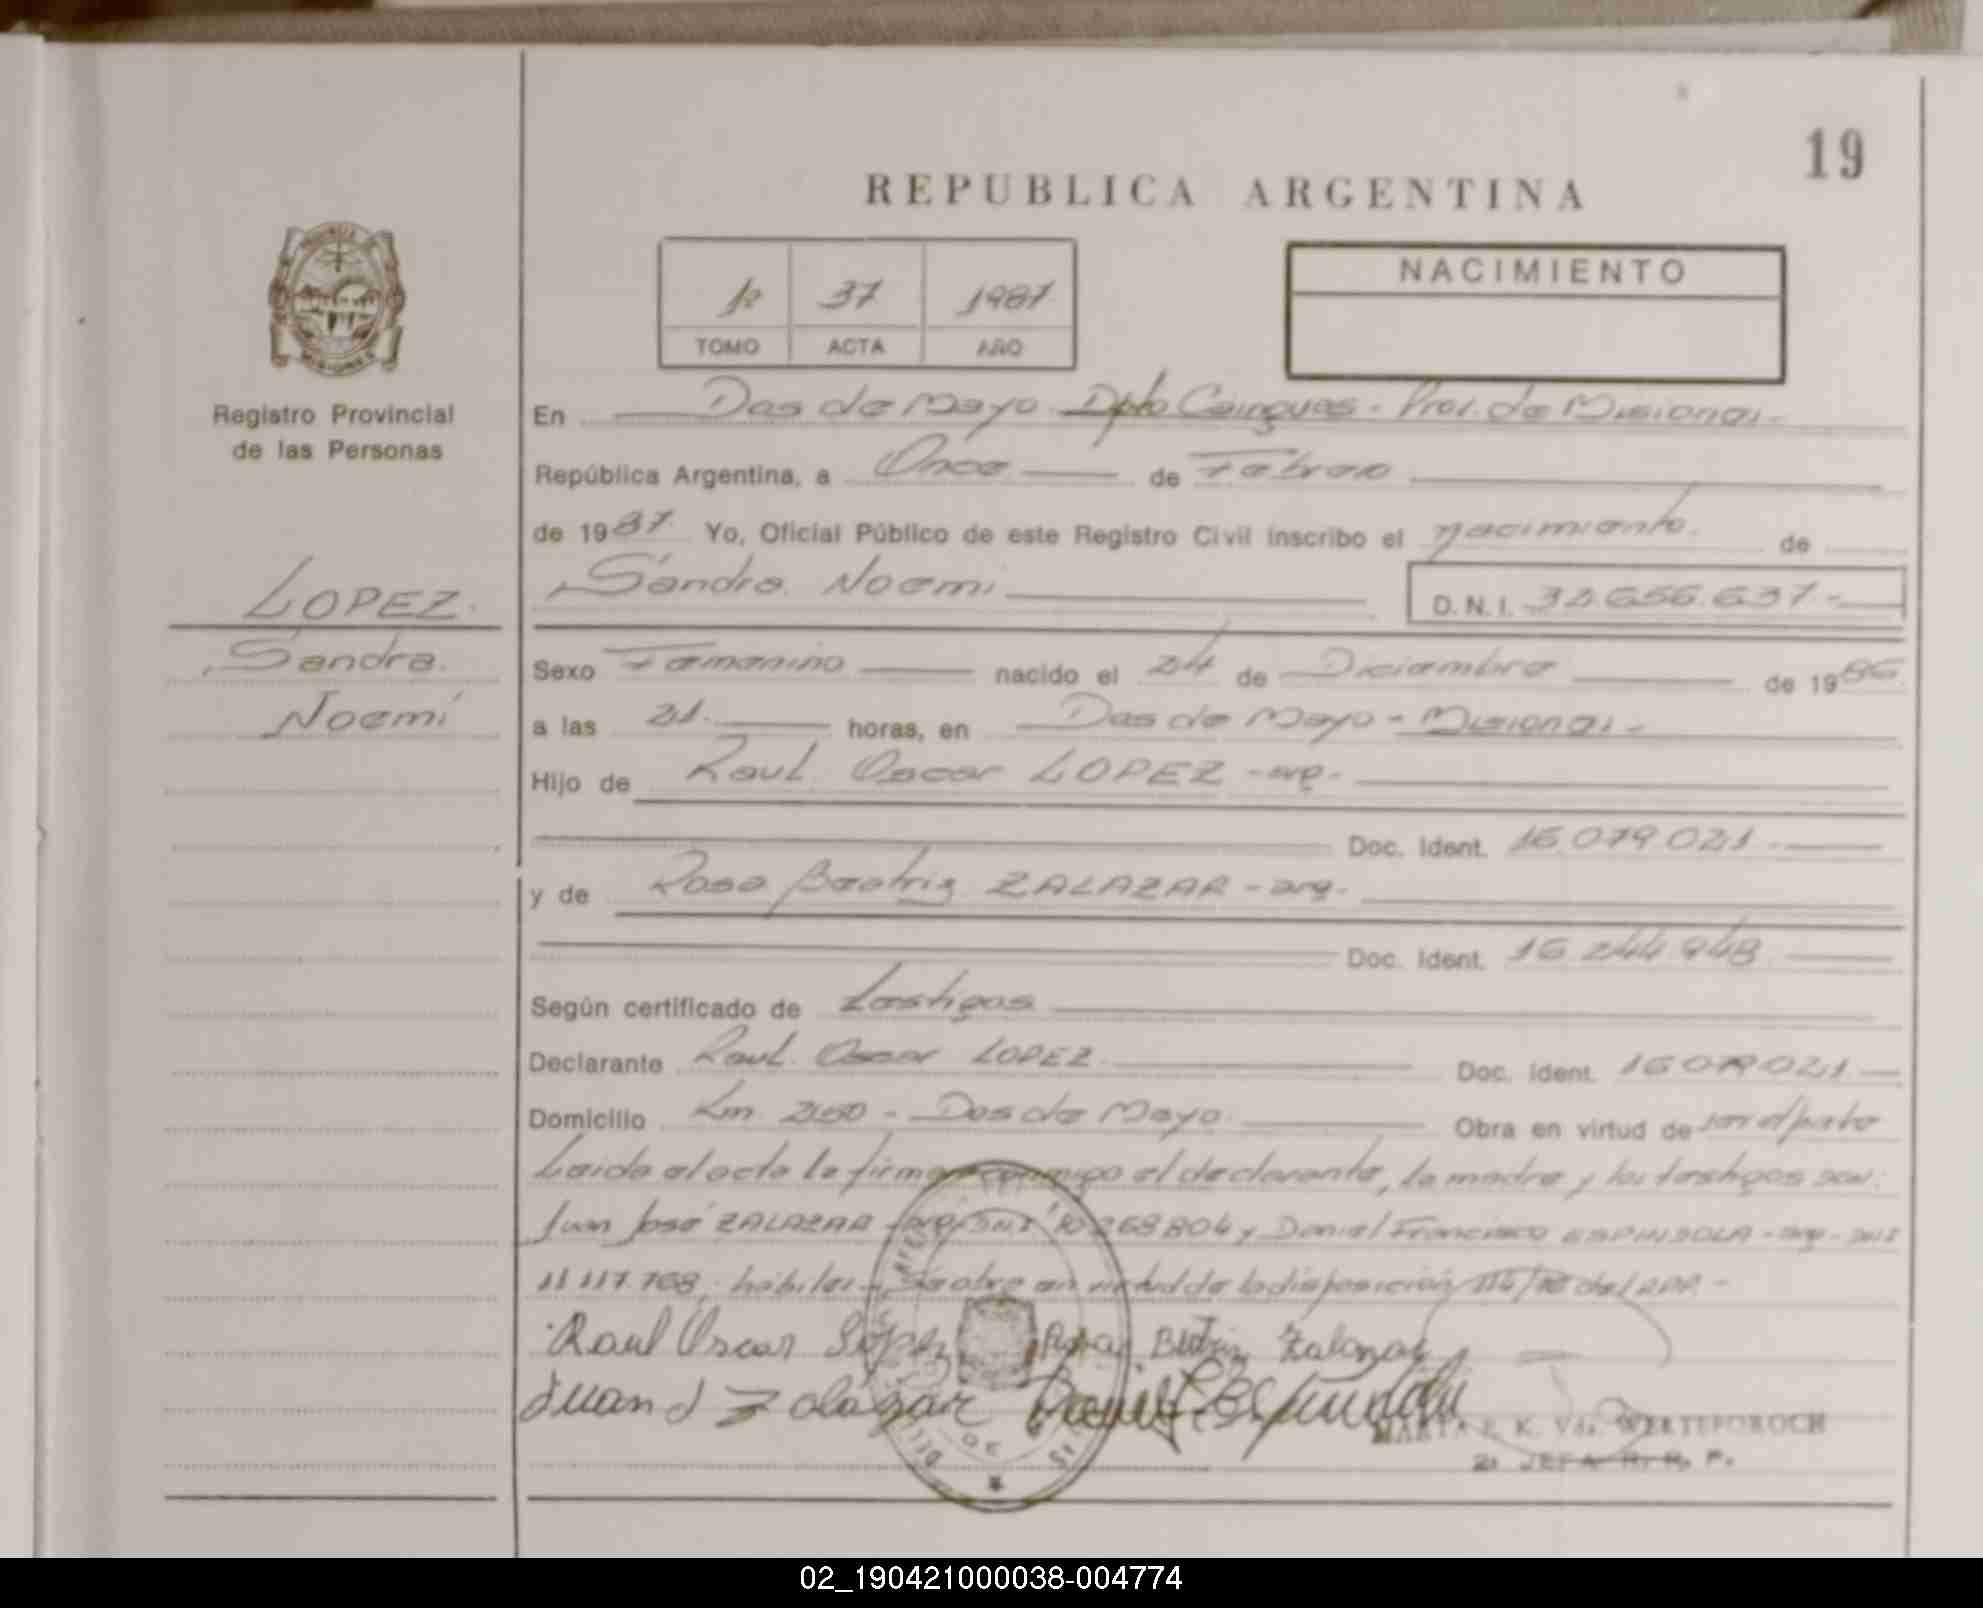 19
REPUBLICA ARGENTINA
1º 37 1987
TOMO ACTA AÑO
NACIMIENTO
Registro Provincial
de las Personas
LOPEZ.
Sandra.
Noemí
En Dos de Mayo Dpto Cainguas - Prov. de Misiones -
República Argentina, a Once de Febrero
de 1987 Yo, Oficial Público de este Registro Civil inscribo el nacimiento. de
Sandra Noemi D.N.I. 32.656.637 -
Sexo Femenino nacido el 24 de Diciembre de 1986
a las 21. horas, en Dos de Mayo - Misiones -
Hijo de Raul Oscar LOPEZ - arg -
Doc. Ident. 16.079.021
y de Rosa Beatriz ZALAZAR - arg -
Doc. Ident. 16 244 948
Según certificado de Testigos
Declarante Raul Oscar LOPEZ Doc. Ident. 16 079 021
Domicilio Km 250 - Dos de Mayo Obra en virtud de ser el padre
Leida el acta la firman conmigo el declarante, la madre y los testigos son:
Juan José ZALAZAR - arg - DNI 10 268 804 y Daniel Francisco ESPINDOLA - arg - DNI
11 117 768, habiles - Se labra en virtud de la disposición 114/78 del RPP. -
Raul Oscar Lopez Rosa Beatriz Zalazar
Juan J Zalazar Daniel F. Espindola
MARTA E. K. Vda. WERTEPOROCH
JEFA R. R. P.
02_190421000038-004774